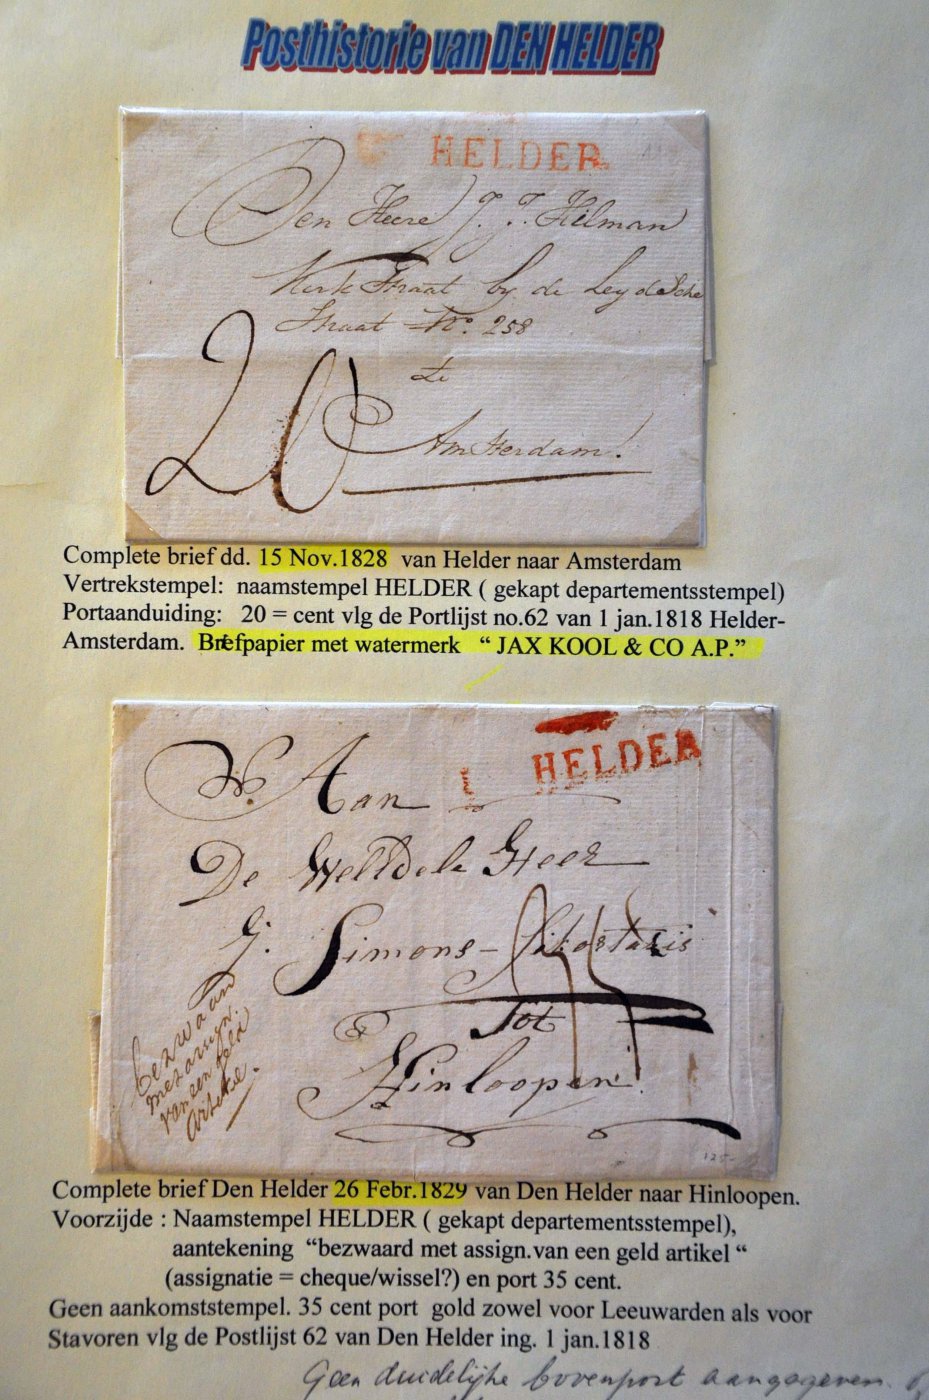 Posthistorie van DEN HELDER
HELDER
Den Heere J. T. Hilman
Kerk Straat by de Leydsche
Straat No. 258
te
Amsterdam!
20
Complete brief dd. 15 Nov.1828 van Helder naar Amsterdam
Vertrekstempel: naamstempel HELDER ( gekapt departementsstempel)
Portaanduiding: 20 = cent vlg de Portlijst no.62 van 1 jan.1818 Helder-
Amsterdam. Briefpapier met watermerk " JAX KOOL & CO A.P."
HELDER
W. Aan
De WelEdele Heer
J. Simons
Tot
Hinloopen.
35
bezwaard
met assign.
van een geld
artikel.
125-
Complete brief Den Helder 26 Febr.1829 van Den Helder naar Hinloopen.
Voorzijde : Naamstempel HELDER ( gekapt departementsstempel),
aantekening "bezwaard met assign.van een geld artikel "
(assignatie = cheque/wissel?) en port 35 cent.
Geen aankomststempel. 35 cent port gold zowel voor Leeuwarden als voor
Stavoren vlg de Postlijst 62 van Den Helder ing. 1 jan.1818
Geen duidelijke bovenport aangegeven.